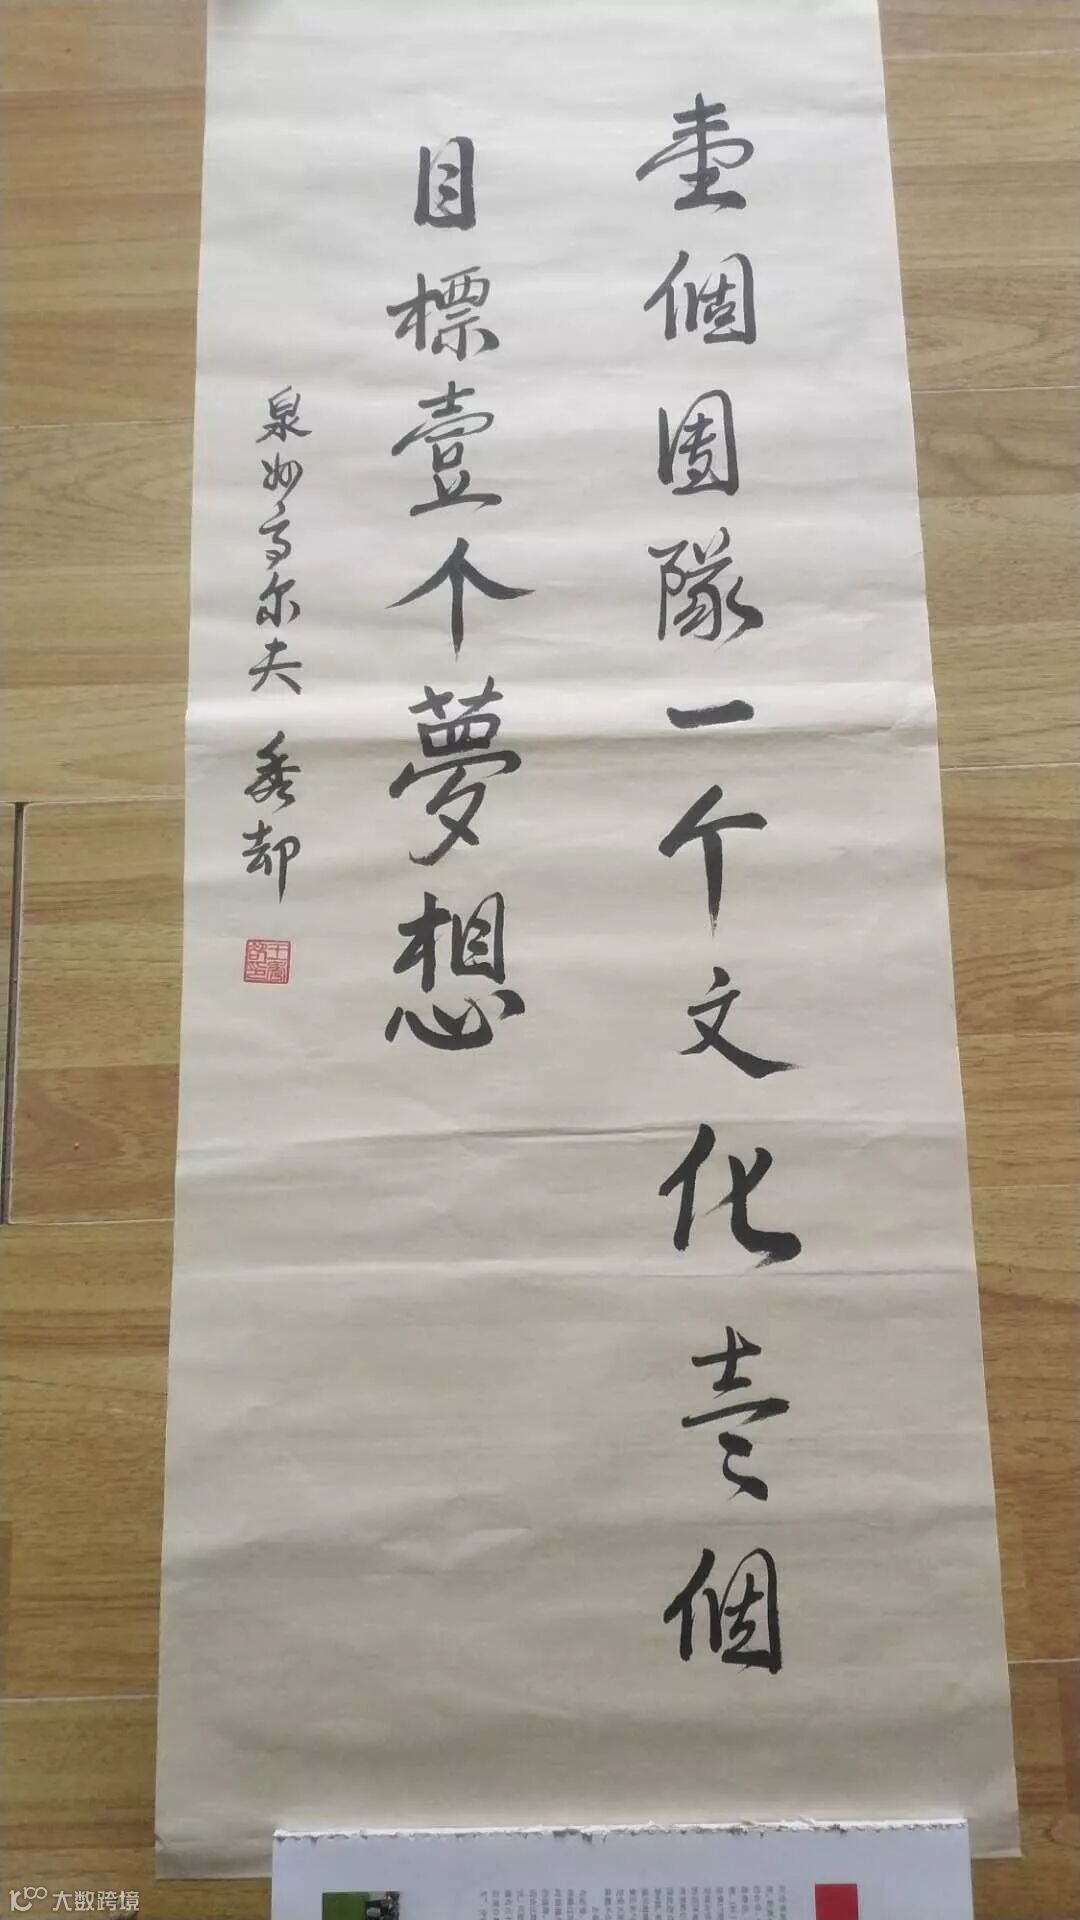 壹個團隊一个文化壹個
目標壹个夢想
泉州高尔夫 秀却
大数跨境